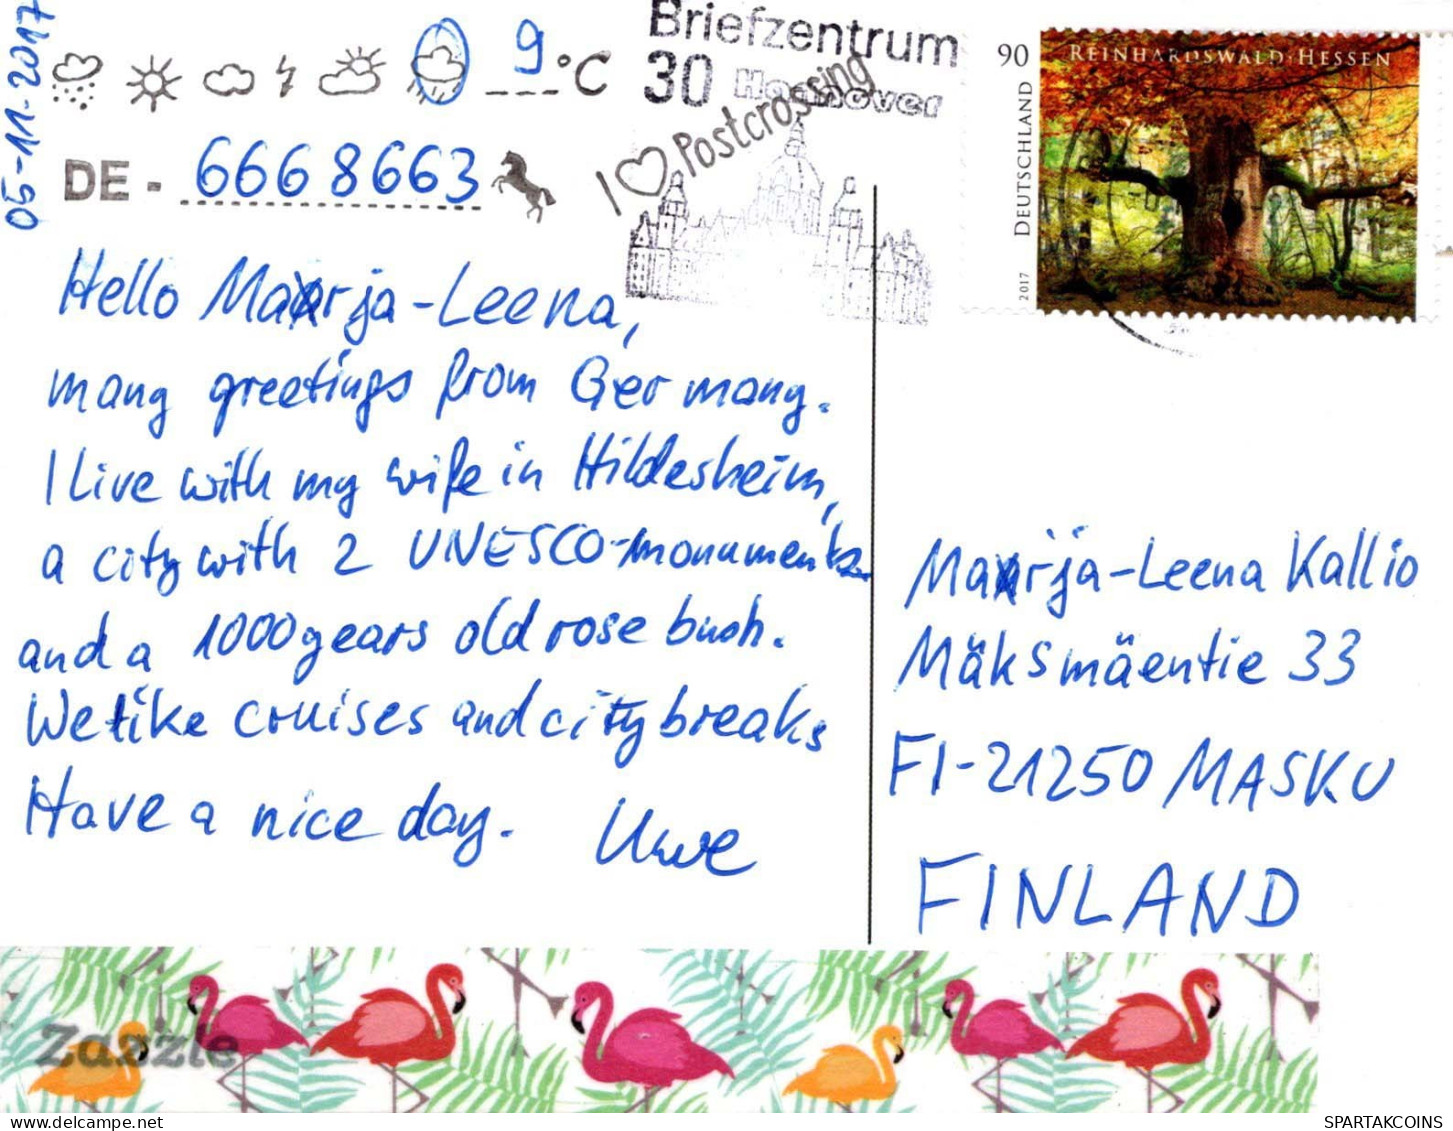 05-11-2017
9 °C
DE - 6668663
I ♡ Postcrossing
Briefzentrum
30 Hannover
90
REINHARDSWALD · HESSEN
DEUTSCHLAND
2017
Hello Maarja-Leena,
many greetings from Germany.
I live with my wife in Hildesheim,
a city with 2 UNESCO-monuments
and a 1000 years old rose bush.
We like cruises and city breaks
Have a nice day. Uwe
Marja-Leena Kallio
Mäksmäentie 33
FI-21250 MASKU
FINLAND
Zazzle
SPARTAKCOINS